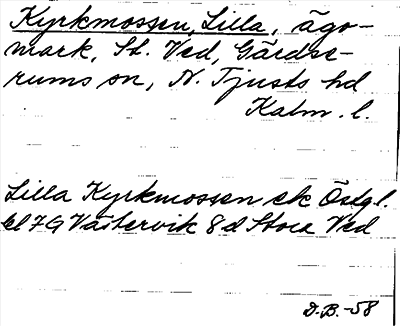 Kyrkmossen, Lilla, ägo-
mark, St. Ved, Gärdse-
rums sn, N. Tjusts hd
Kalm. l.
Lilla Kyrkmossen ek Östg l.
bl 7G Västervik 8d Stora Ved
D.B.-58